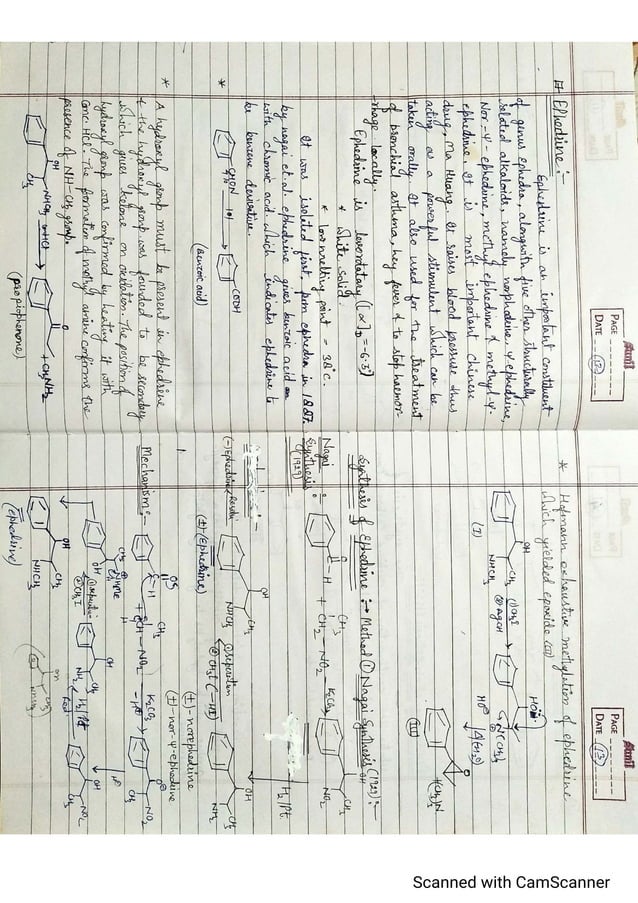 PAGE
DATE
(12)
# Ephedrine :-
Ephedrine is an important constituent
of genus ephedra, alongwith five other structurally
related alkaloids, namely norephedrine, ψ ephedrine,
Nor-ψ-ephedrine, methyl ephedrine & methyl-ψ-
ephedrine. It is most important chinese
drug, Ma Huang. It raises blood pressure thus
acting as a powerful stimulent which can be
taken orally. It also used for the treatment
of bronchial asthma, hey fever & to stop haemor-
rhage locally.
Ephedrine is levorotatory ([α]D = -6.3)
* White solid.
* low melting point - 38°C.
It was isolated first from ephedra in 1887
by nagai et al. ephedrine gives benzoic acid on
with chromic acid which indicates ephedrine to
be benzene derivative.
* C9H15ON [O] COOH
(Benzoic acid)
* A hydroxyl group must be present in ephedrine
& the hydroxyl group was founded to be secondary
which gives ketone on oxidation. The position of
hydroxyl group was confirmed by heating it with
conc. HCl. The formation of methyl amine confirms the
presence of NH-CH3 group.
OH
NHCH3 HCl
CH3
O
+ CH3NH2
(propiophenone)
PAGE
DATE
(13)
* Hofmann exhaustive methylation of ephedrine
which yielded epoxide (III)
OH
CH3 (i) CH3I
NHCH3 (ii) AgOH
(I)
(III)
Synthesis of Ephedrine :→ Method ① Nagai Synthesis (1929) :-
Nagai
Synthesis :
(1929)
C-H + CH2-NO2 K2CO3
CH3
OH
CH3
NO2
H2/Pt.
(±)-norephedrine
(±)-nor-ψ-ephedrine
OH
CH3
NH2
OH
CH3
NHCH3
(±)-(Ephedrine)
(-) Ephedrine
Mechanism :-
C-H + CH-NO2 K2CO3
CH3
NO2
CH3
OH
CH3
NO2
H2/Pt
OH
CH3
NH2
② CH3I
OH
CH3
NHCH3
(Ephedrine)
Scanned with CamScanner